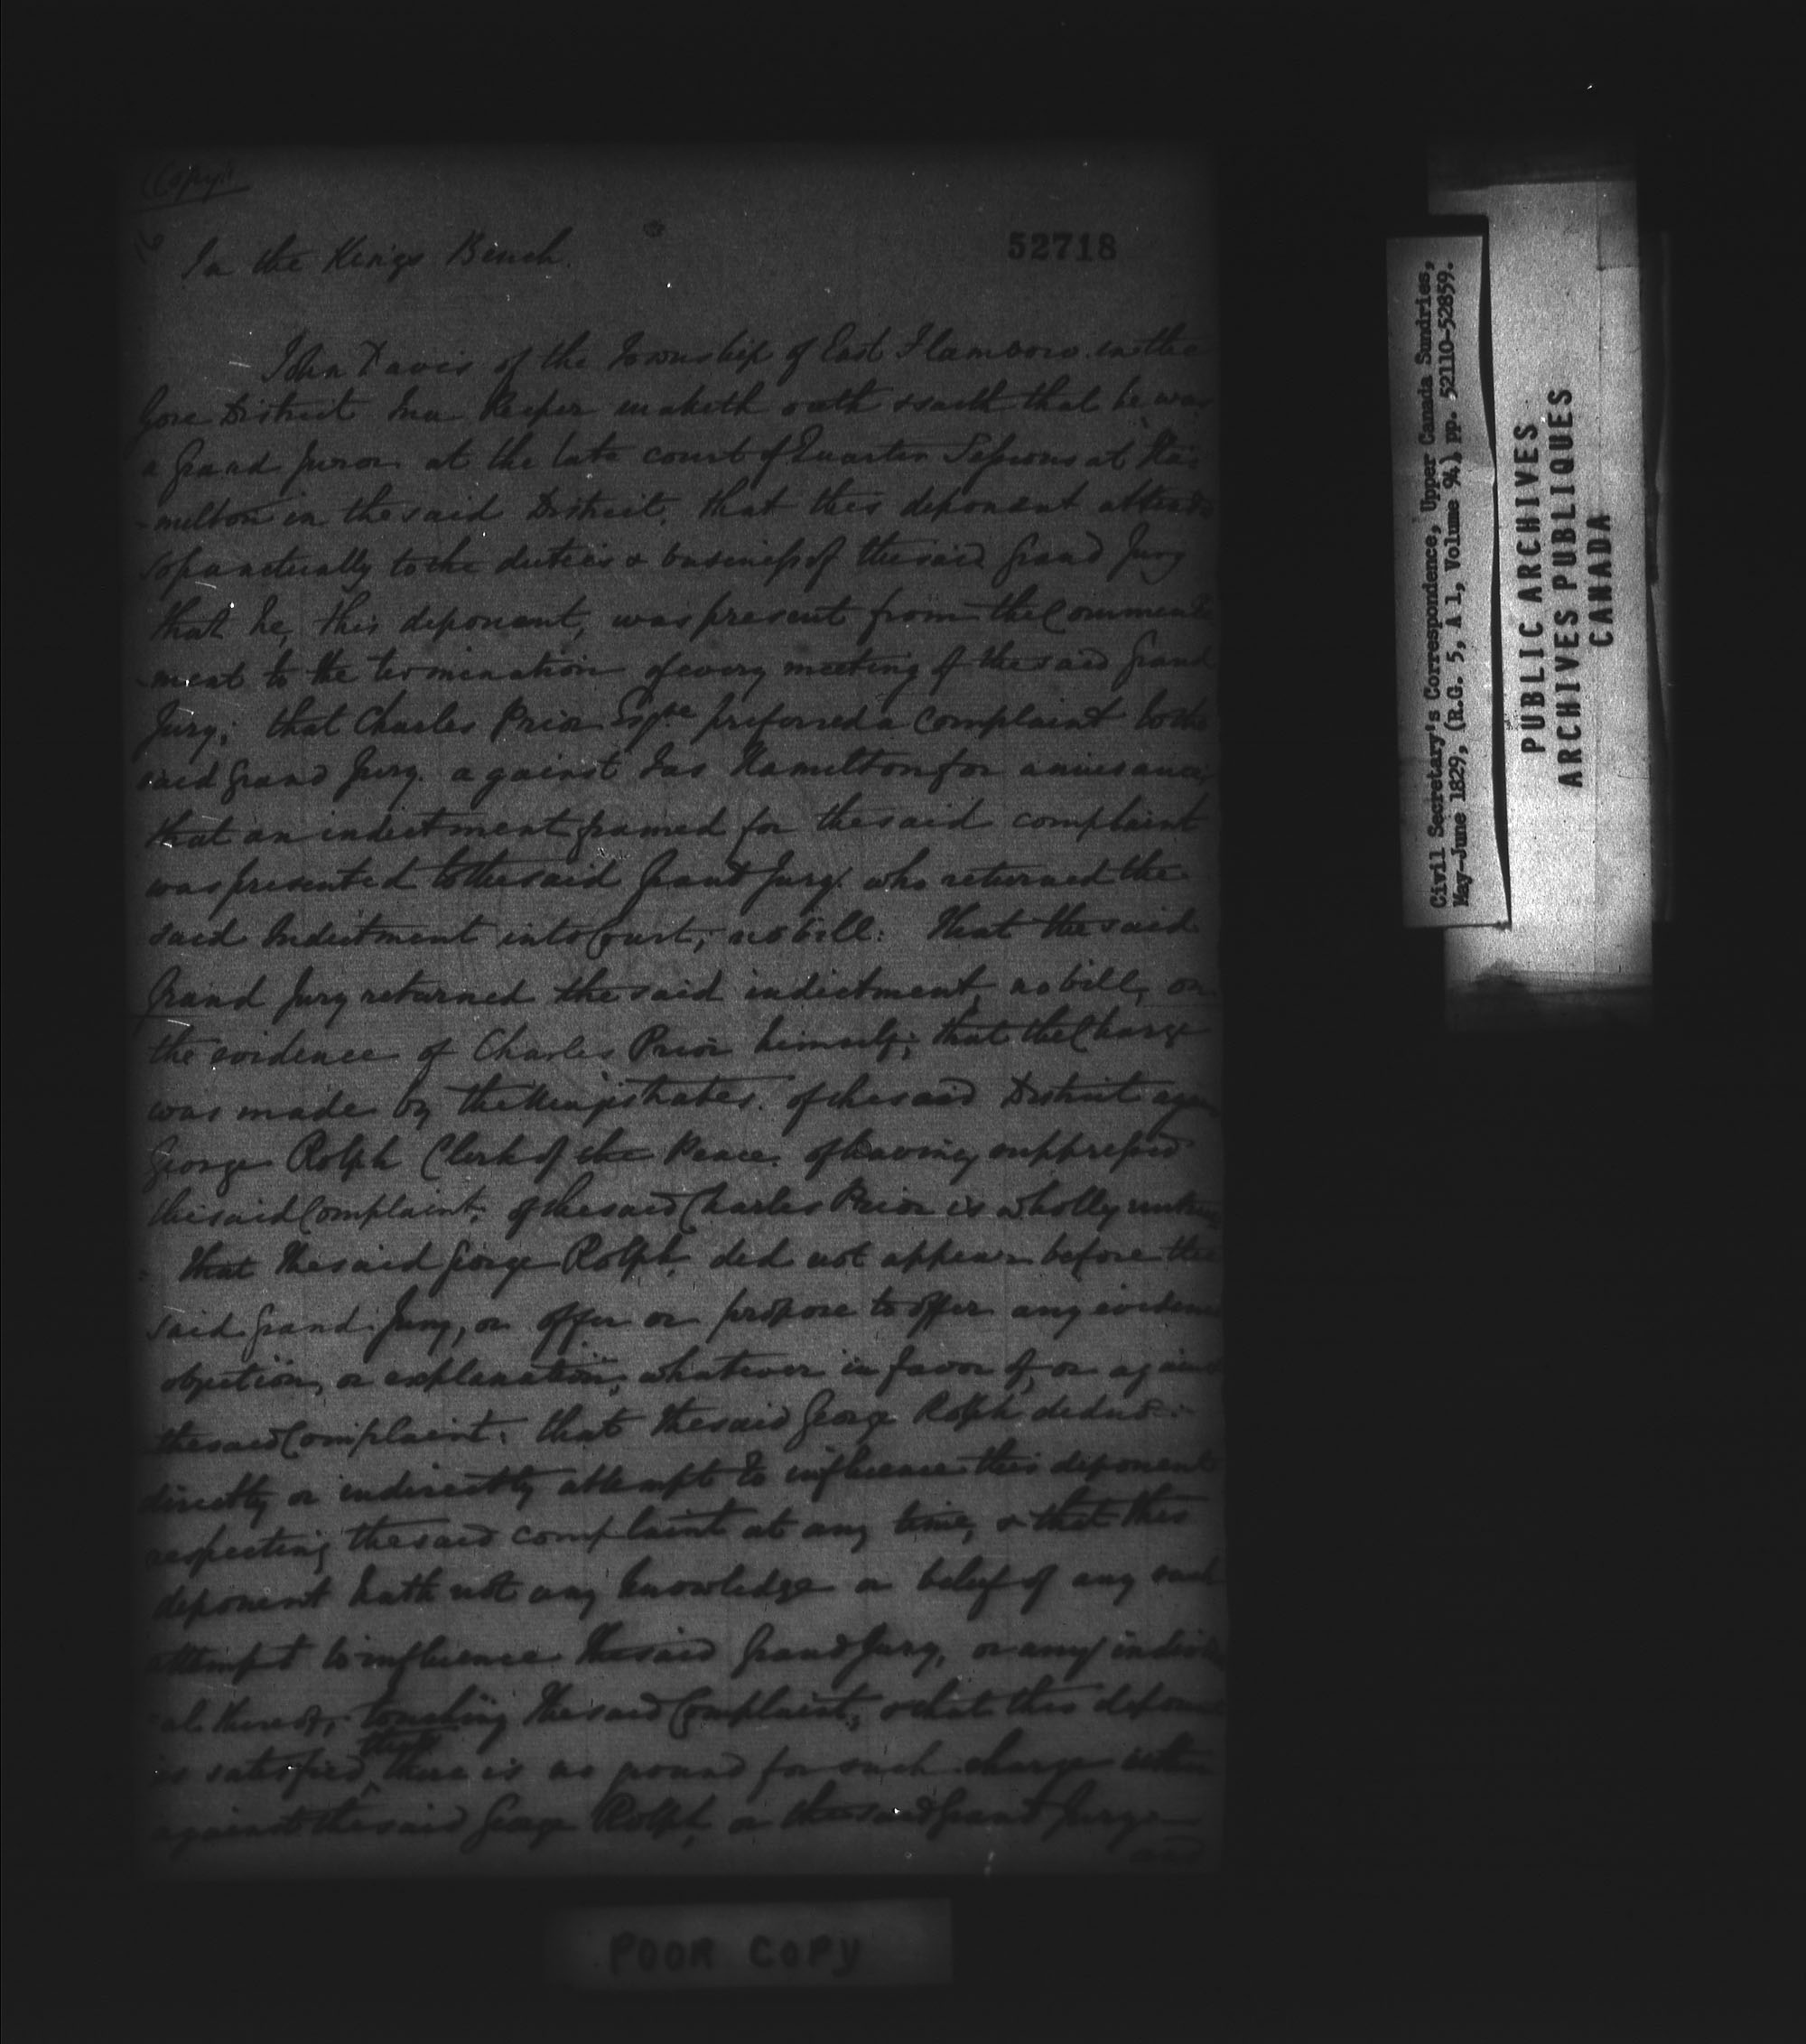 (Copy)
In the Kings Bench.
52718
John Davis of the Township of East Flamboro in the
Gore District Inn Keeper maketh oath & saith that he was
a Grand Juror at the late court of Quarter Sessions at Ha
-milton in the said District. that this deponant attend
so punctually to the duties & business of the said Grand Jury
that he, this deponant, was present from the Commence
ment to the termination of every meeting of the said Grand
Jury; that Charles Prior Esqre preferred a complaint to the
said Grand Jury against Jas Hamilton for a nuisance
that an indictment framed for the said complaint
was presented to the said Grand Jury. who returned the
said Indictment into Court, no bill: that the said
Grand Jury returned the said indictment, no bill, on
the evidence of Charles Prior himself; that the Charge
was made by the Magistrates. of the said District
George Rolph Clerk of the Peace. of having suppressed
the said Complaint, of the said Charles Prior is wholly untrue
That the said George Rolph, did not appear before the
said Grand Jury, or offer or propose to offer any evidence
objection, or explanation, whatever in favor of, or against
the said Complaint. that the said George Rolph did
directly or indirectly attempt to influence this deponent
respecting the said complaint at any time, & that this
deponent hath not any knowledge or belief of any such
attempt to influence the said Grand Jury, or any individu
al thereof, touching the said Complaint; & that this deponent
is satisfied that there is no ground for such charge either
against the said George Rolph, or the said Grand Jury
and
POOR COPY
Civil Secretary's Correspondence, Upper Canada Sundries,
May-June 1829, (R.G. 5, A 1, Volume 94) pp. 52110-52859.
PUBLIC ARCHIVES
ARCHIVES PUBLIQUES
CANADA